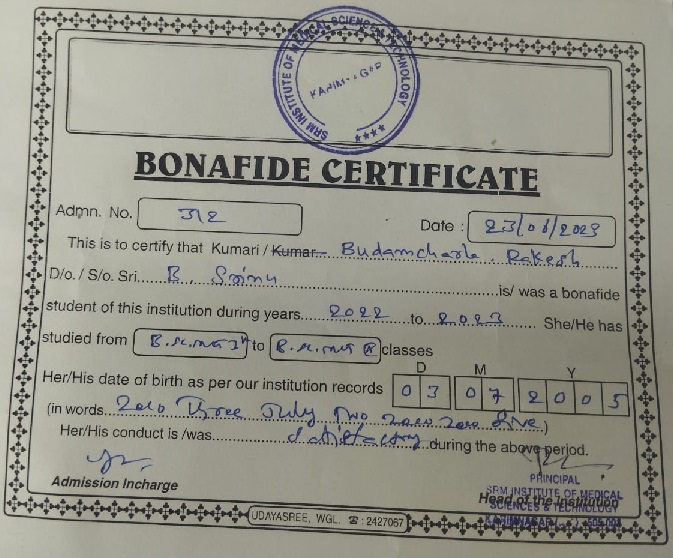 SRM INSTITUTE OF MEDICAL SCIENCES TECHNOLOGY
KARIMNAGAR
BONAFIDE CERTIFICATE
Admn. No. 312
Date : 23/06/2023
This is to certify that Kumari / Kumar Budamcharla. Rakesh
D/o. / S/o. Sri. B. Srinu is/ was a bonafide
student of this institution during years 2022 to 2023 She/He has
studied from to classes
D M Y
Her/His date of birth as per our institution records 03 07 2005
(in words Zero Three July Two zero zero five)
Her/His conduct is /was Satisfactory during the above period.
Admission Incharge
PRINCIPAL
SRM INSTITUTE OF MEDICAL
SCIENCES & TECHNOLOGY
Head of the Institution
UDAYASREE, WGL. ☎ : 2427067